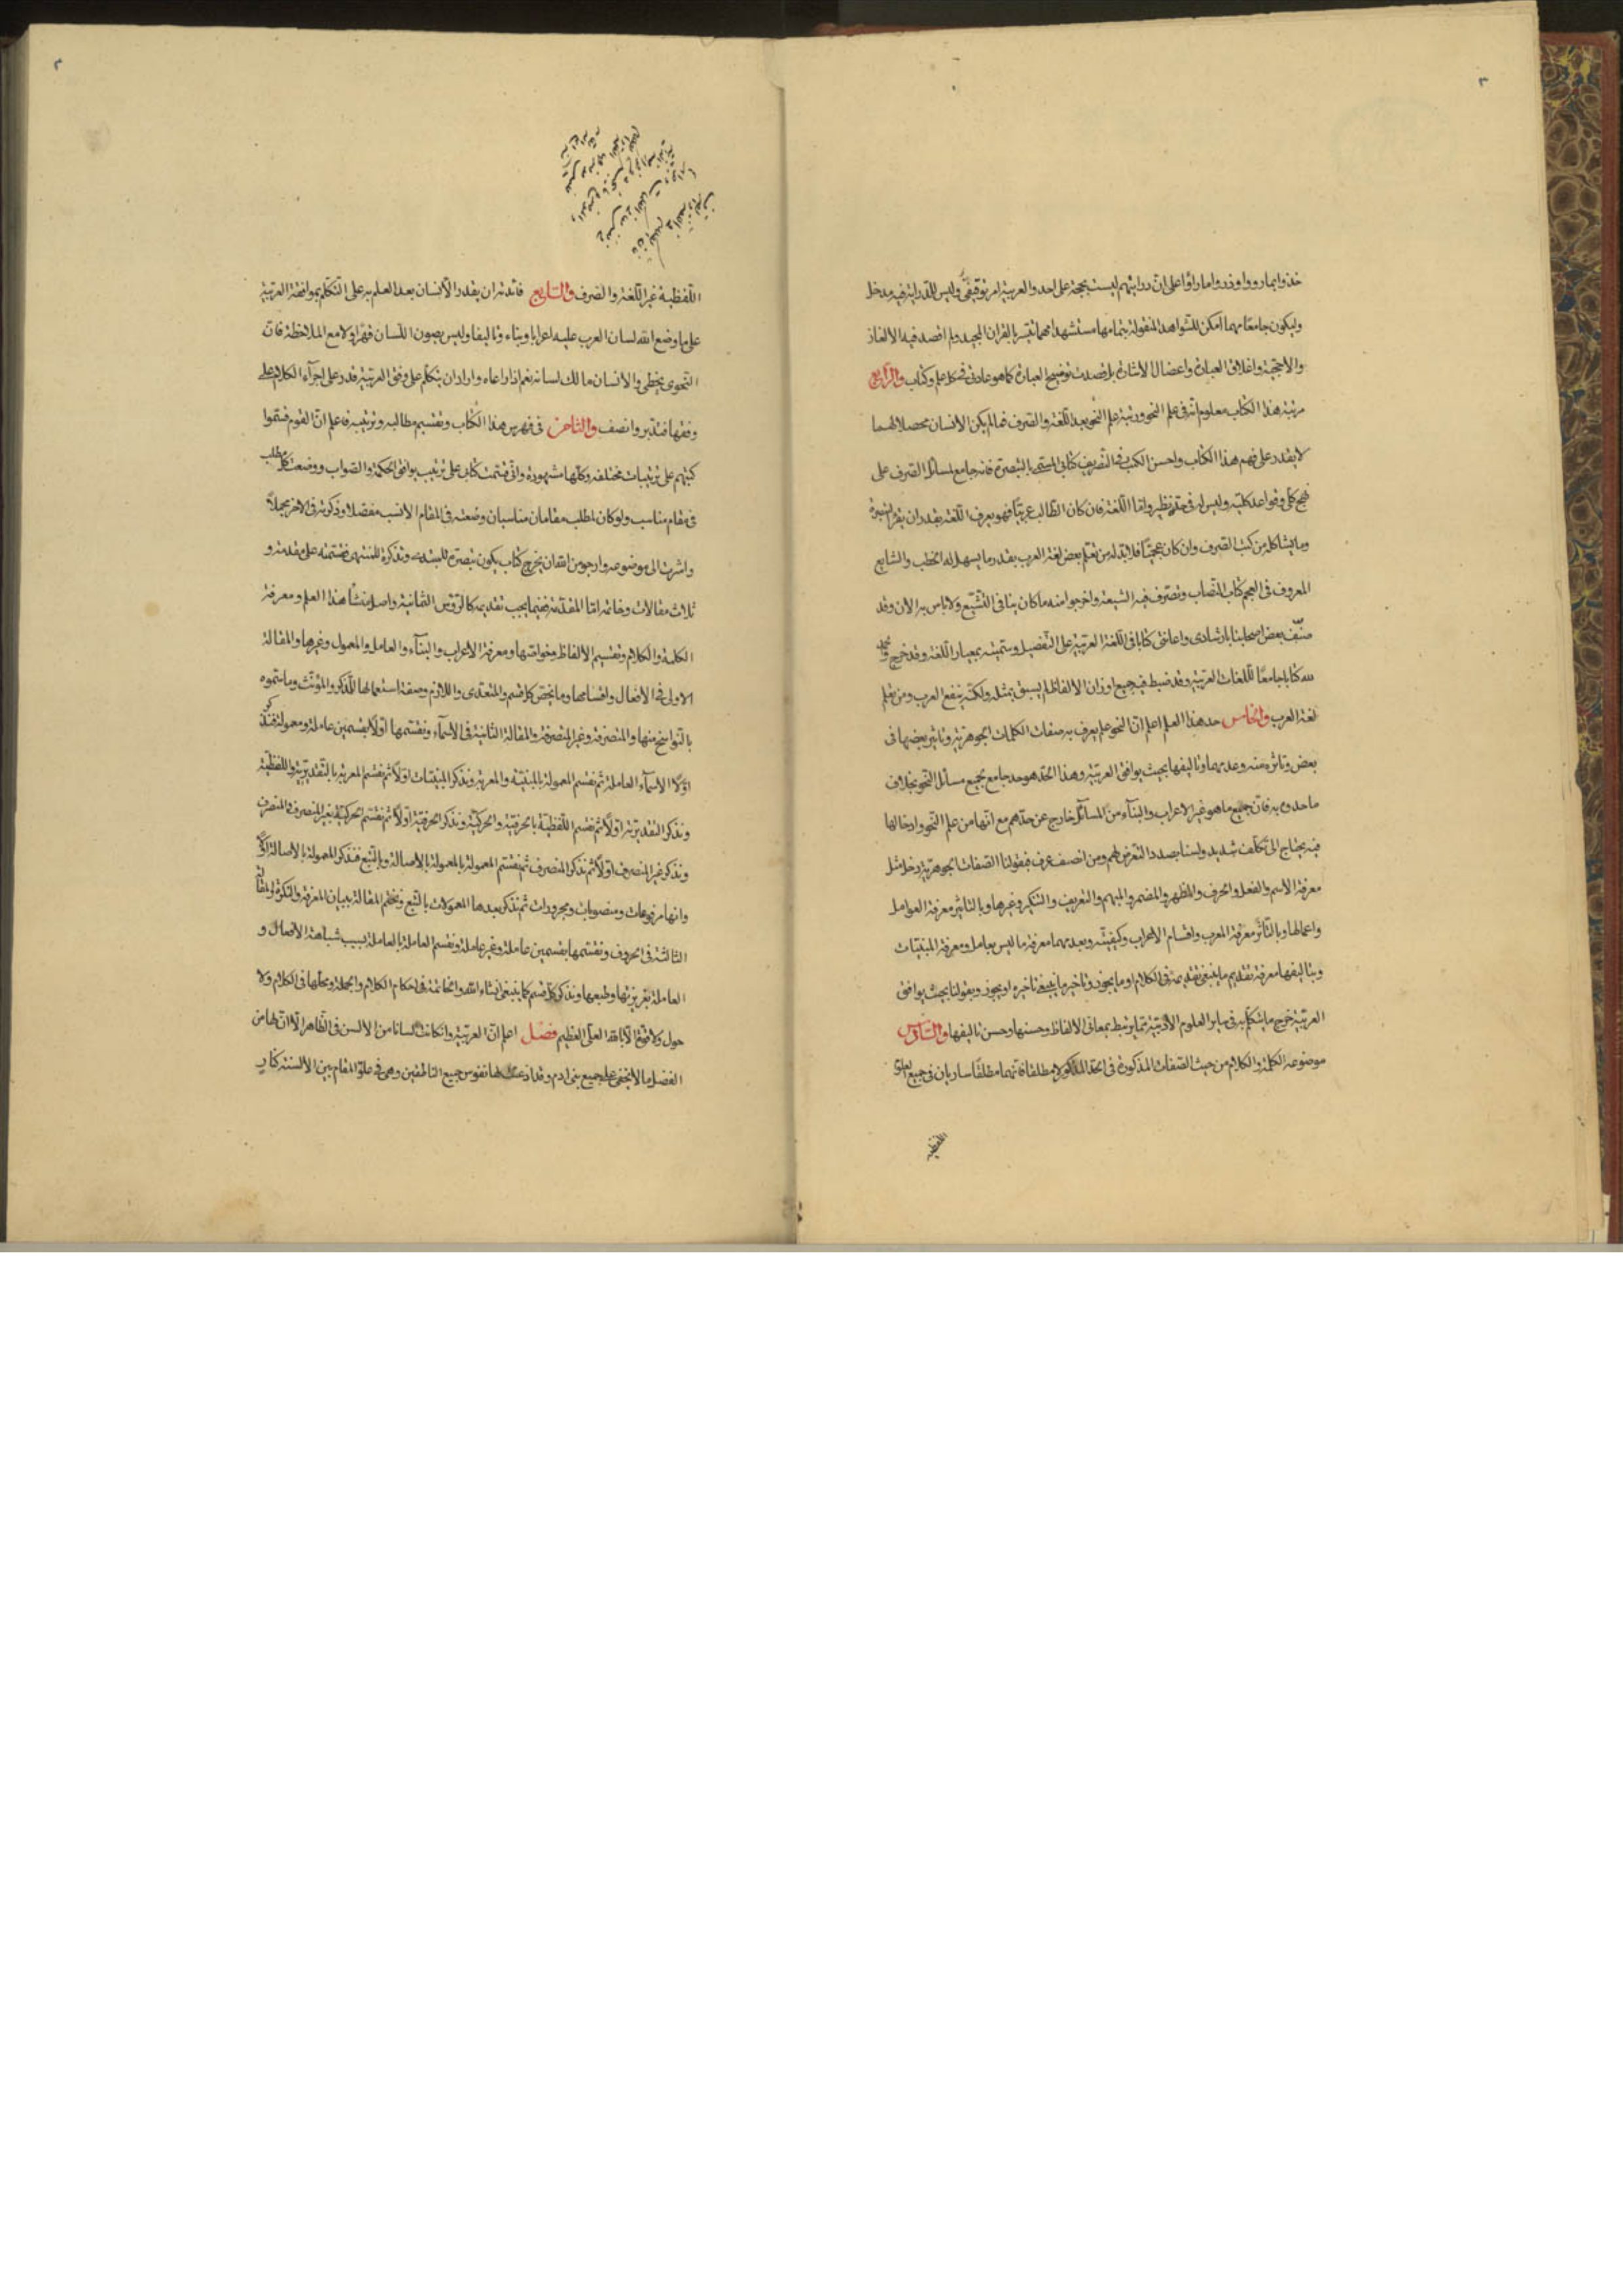 ٣
خذوا بما رووا وذروا ما رأوا على ان درايتهم ليست بحجة على احد والعربية امر توقيفى وليس للدراية فيه مدخل
وليكون جامعًا مهما امكن للشواهد المنقولة بتمامها مستشهدا مهما تيسر بالقران المجيد ولم اقصد فيه الالغاز
والاحجية واغلاق العبارة واعضال الاشارة بل قصدت توضيح العبارة كما هو عادتى فى كل علم وكتاب والرابع
مرتبة هذا الكتاب معلوم انه فى علم النحو ورتبة علم النحو بعد اللغة والصرف فما لم يكن الانسان محصلا لهما
لا يقدر على فهم هذا الكتاب واحسن الكتب فى التصريف كتابى المسمى بالتبصرة فانه جامع لمسائل الصرف على
نهج كلى وقواعد كلية وليس له فى حده نظير واما اللغة فان كان الطالب عربيًا فهو يعرف اللغة بقدر ان يقرأ التبصرة
وما يشاكله من كتب الصرف وان كان عجميًا فلابد له من تعلم بعض لغة العرب بقدر ما يسهل له الخطب والشايع
المعروف فى العجم كتاب النصاب وتصرف فيه الشيعة واخرجوا منه ما كان ينافى التشيع ولا باس به الان وقد
صنف بعض اصحابنا بارشادى واعانتى كتابا فى اللغة العربية على التفصيل وسميته بمعيار اللغة وقد خرج بحمد
لله كتابا جامعًا للغات العربية وقد ضبط فيه جميع اوزان الالفاظ لم يسبق بمثله ولكنه ينفع العرب ومن تعلم
لغة العرب والخامس حد هذا العلم اعلم ان النحو علم يعرف به صفات الكلمات الجوهرية وتاثير بعضها فى
بعض وتاثره منه وعدمهما وتاليفها بحيث يوافق العربية وهذا الحد هو حد جامع لجميع مسائل النحو بخلاف
ما حدوه به فان جميع ما هو غير الاعراب والبناء من المسائل خارج عن حدهم مع انها من علم النحو وادخالها
فيه يحتاج الى تكلف شديد ولسنا بصدد التعرض لهم ومن انصف عرف فبقولنا الصفات الجوهرية دخل مثل
معرفة الاسم والفعل والحرف والمظهر والمضمر والمبهم والتعريف والتنكير وغيرها وبالتاثير معرفة العوامل
واعمالها وبالتأثر معرفة المعرب واقسام الاعراب وكيفيته وبعدمهما معرفة ما ليس بعامل ومعرفة المبنيات
وبتاليفها معرفة تقديم ما ينبغى تقديمه فى الكلام او ما يجوز وتاخير ما ينبغى تاخيره او يجوز وبقولنا بحيث يوافق
العربية خرج ما يتكلم به فى ساير العلوم الادبية مما يرتبط بمعانى الالفاظ وحسنها وحسن تاليفها والسادس
موضوعه الكلمة والكلام من حيث الصفات المذكورة فى الحد المذكور لا مطلقا فانهما مطلقًا ساريان فى جميع العلوم
اللفظية
٢
اللفظية غير اللغة والصرف والسابع فائدته ان يقدر الانسان بعد العلم به على التكلم بموافقة العربية
على ما وضع الله لسان العرب عليه اعرابا وبناء وتاليفا وليس يصون اللسان قهرا ولا مع الملاحظة فان
النحوى يخطى والانسان مالك لسانه نعم اذا راعاه واراد ان يتكلم على وفق العربية قدر على اجرآء الكلام على
وفقها فتدبر وانصف والثامن فى فهرس هذا الكتاب وتقسيم مطالبه وترتيبه فاعلم ان القوم قسموا
كتبهم على ترتيبات مختلفه وكلها مشهودة وانى قسمت كتابى على ترتيب يوافق الحكمة والصواب ووضعت كل مطلب
فى مقام مناسب ولو كان لمطلب مقامان مناسبان وضعته فى المقام الانسب مفصلا وذكرته فى الاخر مجملًا
واشرت الى موضوعه وارجو من الله ان يخرج كتاب يكون تبصرة للمبتدى وتذكرة للمنتهى فقسمته على مقدمة و
ثلاث مقالات وخاتمة اما المقدمة ففيما يجب تقديمه كالرؤس الثمانية واصل منشأ هذا العلم ومعرفة
الكلمة والكلام وتقسيم الالفاظ وخواصها ومعرفة الاعراب والبنآء والعامل والمعمول وغيرها والمقالة
الاولى فى الافعال واقسامها وما يختص كل قسم والمتعدى واللازم وصفة استعمالها للمذكر والمؤنث وما سموه
بالنواسخ منها والمتصرفة وغير المتصرفة والمقالة الثانية فى الاسمآء ونقسمها اولًا بقسمين عاملة ومعمولة فنذكر
اولًا الاسمآء العاملة ثم نقسم المعمولة بالمبنية والمعربة ونذكر المبنيات اولًا ثم نقسم المعربة بالتقديرية واللفظية
ونذكر التقديرية اولًا ثم نقسم اللفظية بالحرفية والحركية ونذكر الحرفية اولًا ثم نقسم الحركية بغير المنصرف والمنصرف
ونذكر غير المنصرف اولًا ثم نذكر المنصرف ثم نقسم المعمولة بالمعمولة بالاصالة وبالتبع فنذكر المعمولة بالاصالة اولًا
وانها مرفوعات ومنصوبات ومجرورات ثم نذكر بعدها المعمولات بالتبع ونختم المقالة ببيان المعرفة والنكرة والمقالة
الثالثة فى الحروف ونقسمها بقسمين عاملة وغير عاملة ونقسم العاملة بالعاملة بسبب شباهة الافعال و
العاملة بغريزتها وطبعها ونذكر كل قسم كما ينبغى انشاء الله والخاتمة فى احكام الكلام والجملة ومحلها فى الكلام ولا
حول ولا قوة الا بالله العلى العظيم فصل اعلم ان العربية وان كانت لسانا من الالسن فى الظاهر الا ان لها من
الفضل ما لا يخفى على جميع بنى ادم وقد اذعنت لها نفوس جميع الناطقين وهى فى علو المقام بين الالسنة كنار